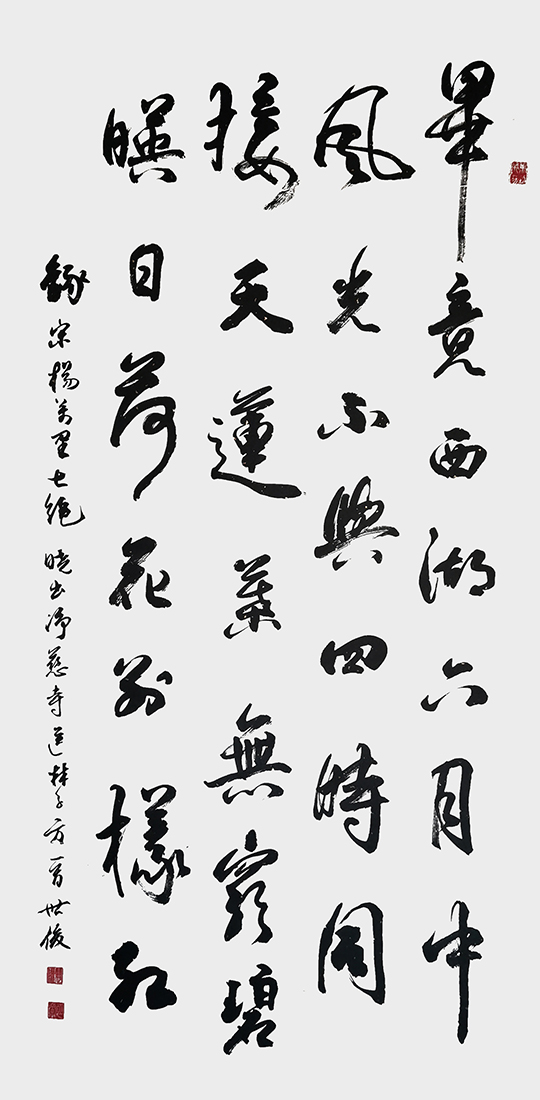 畢竟西湖六月中
風光不與四時同
接天蓮葉無窮碧
暎日荷花別樣紅
錄宋楊萬里七絕 曉出淨慈寺送林子方一首 世俊